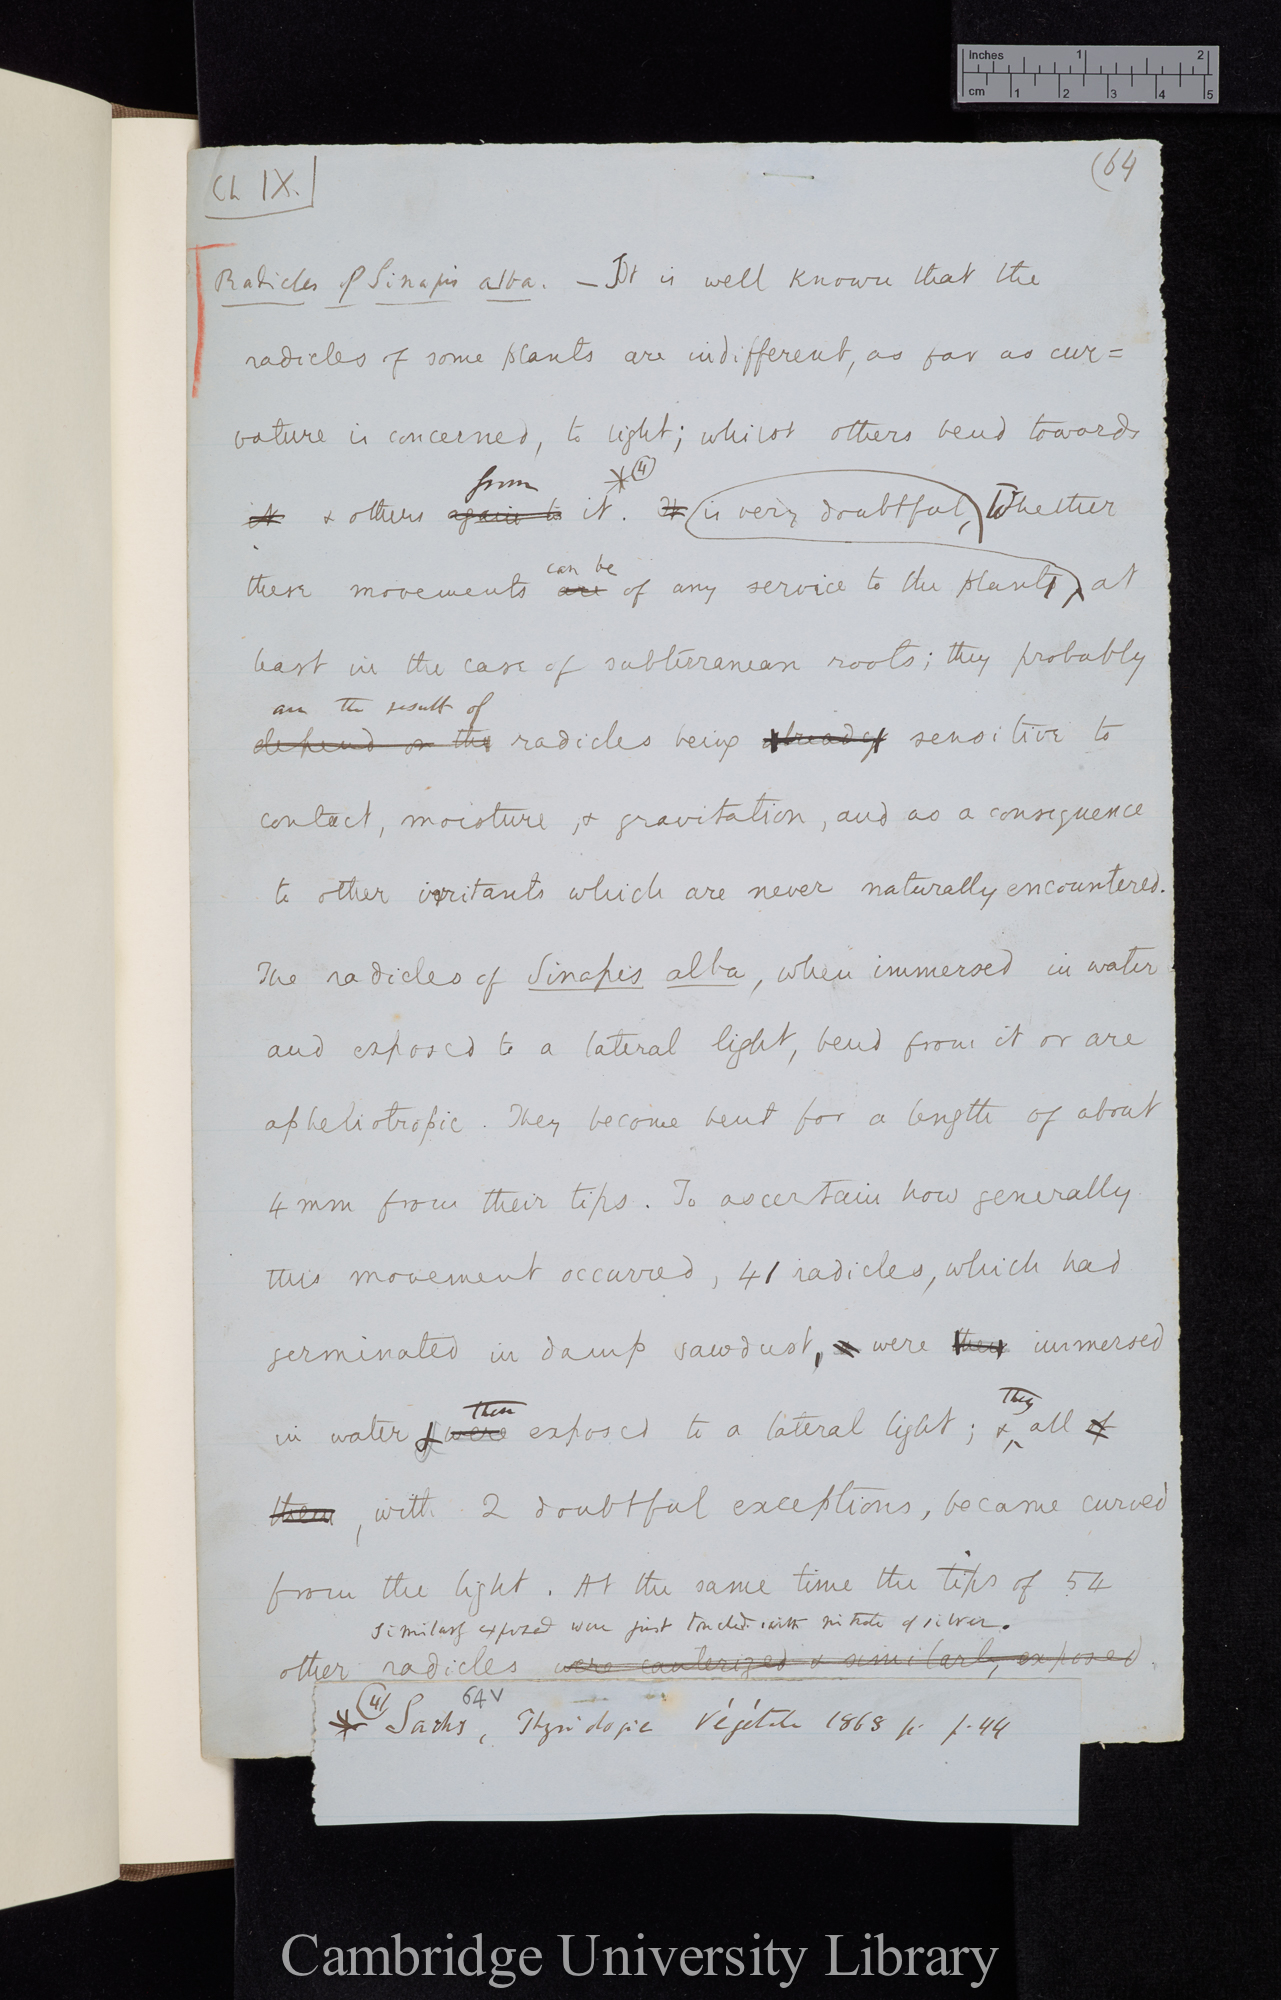 Inches 1 2
cm 1 2 3 4 5
Ch IX.
(64
Radicles of Sinapis alba. — It is well known that the
radicles of some plants are indifferent, as far as cur=
vature is concerned, to light; whilst others bend towards
from *(4)
it & others again to it. It is very doubtful, Whether
can be
these movements are of any service to the plants, at
least in the case of subterranean roots; they probably
are the result of
depend on the radicles being already sensitive to
contact, moisture, & gravitation, and as a consequence
to other irritants which are never naturally encountered.
The radicles of Sinapis alba, when immersed in water
and exposed to a lateral light, bend from it or are
apheliotropic. They become bent for a length of about
4 mm from their tips. To ascertain how generally
this movement occurred, 41 radicles, which had
germinated in damp sawdust, & were then immersed
then They
in water & were exposed to a lateral light; & all of
them, with 2 doubtful exceptions, became curved
from the light. At the same time the tips of 54
similarly exposed were just touched with nitrate of silver.
other radicles were cauterized & similarly exposed.
64v
*(4) Sachs, Physiologie Végétale 1868 p. p. 44
Cambridge University Library